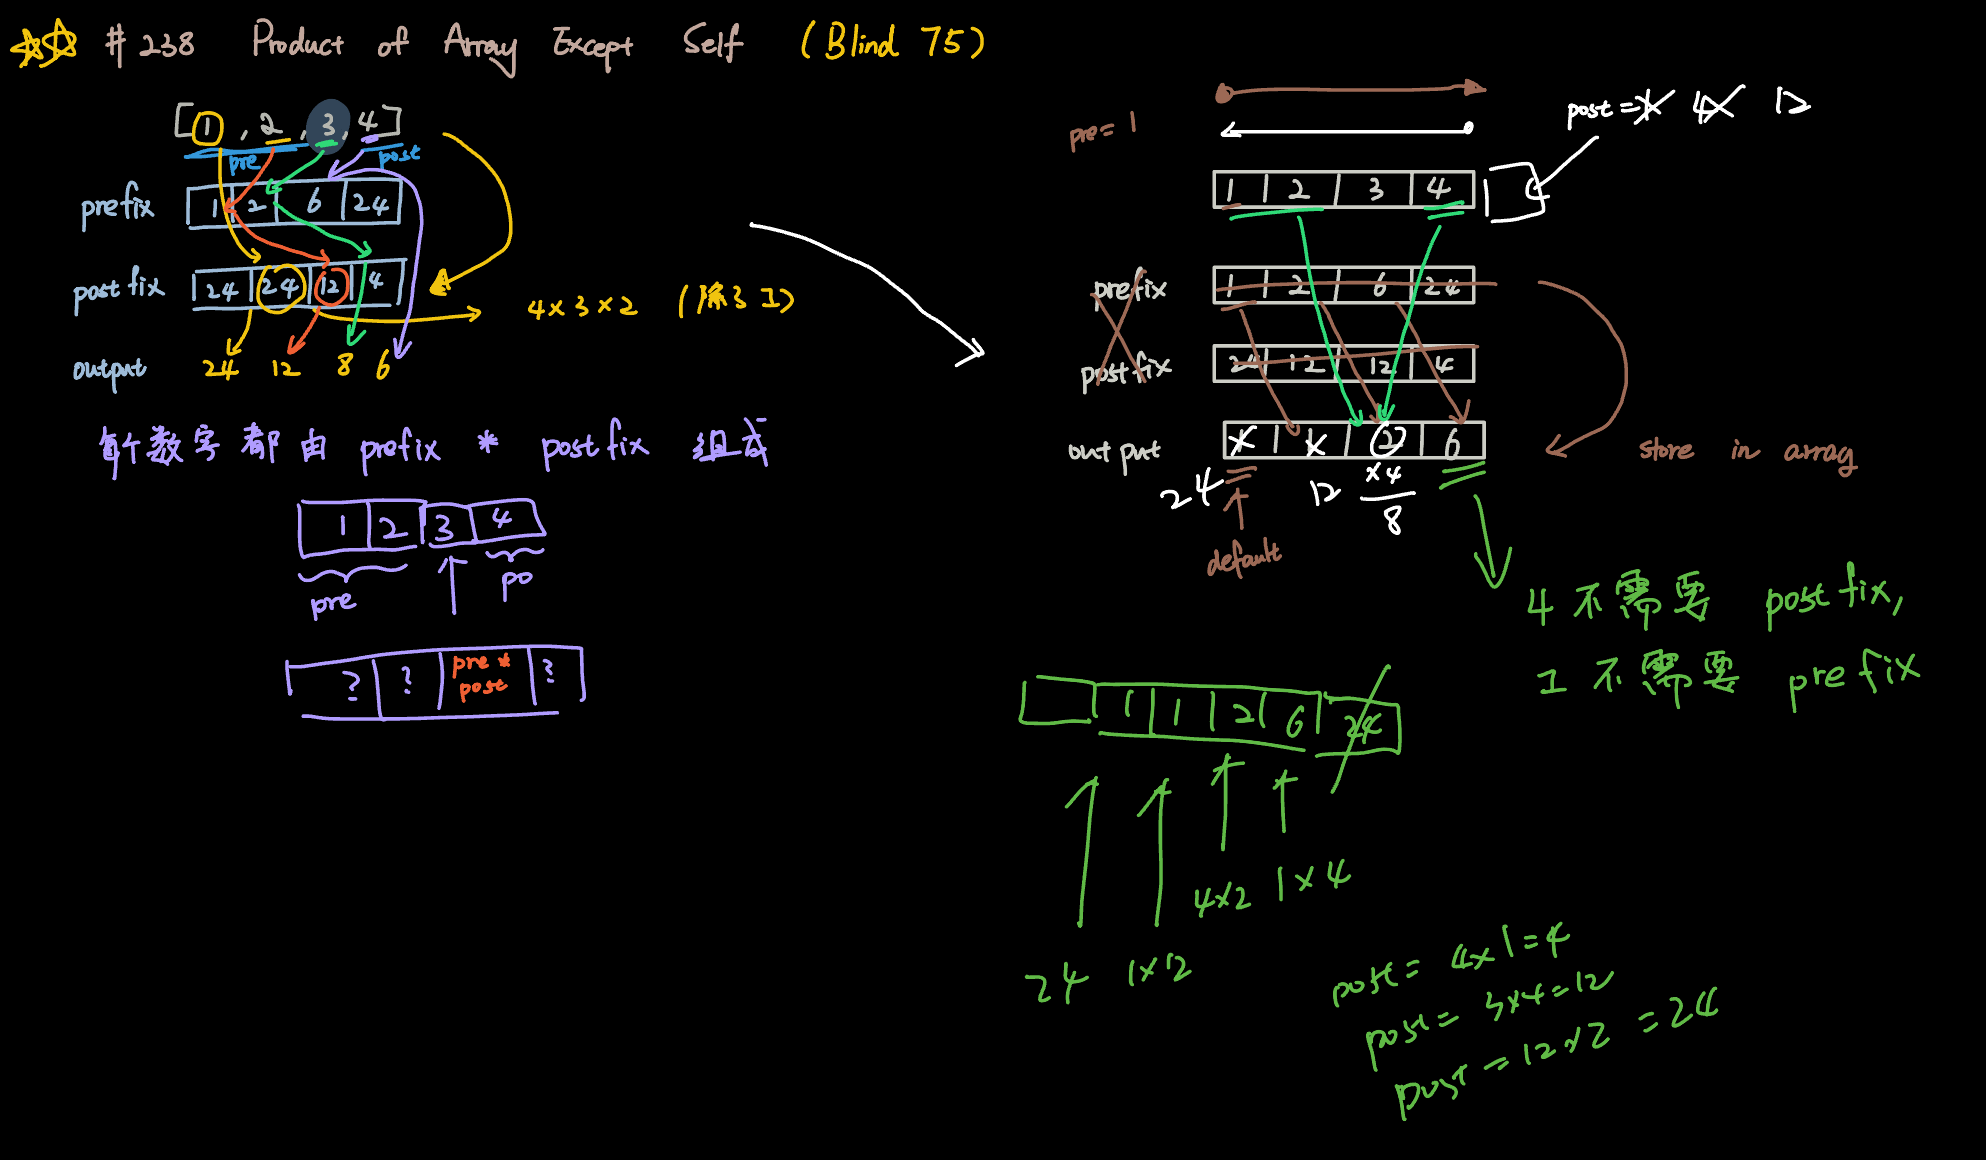 # 238 Product of Array Except Self (Blind 75)
[1, 2, 3, 4]
pre post
prefix 1 2 6 24
postfix 24 24 12 4
4 x 3 x 2 (除了1)
output 24 12 8 6
每个数字都由 prefix * postfix 组成
1 2 3 4
pre po
? ? pre * post ?
pre = 1
post = 1 4 12
1 2 3 4
prefix 1 2 6 24
postfix 24 12 12 4
output 1 1 2 6
store in array
24 12 x4
8
default
4 不需要 postfix,
1 不需要 prefix
1 1 2 6 24
4x2 1x4
24 1x12
post = 4x1=4
post = 3x4=12
post = 12x2 = 24